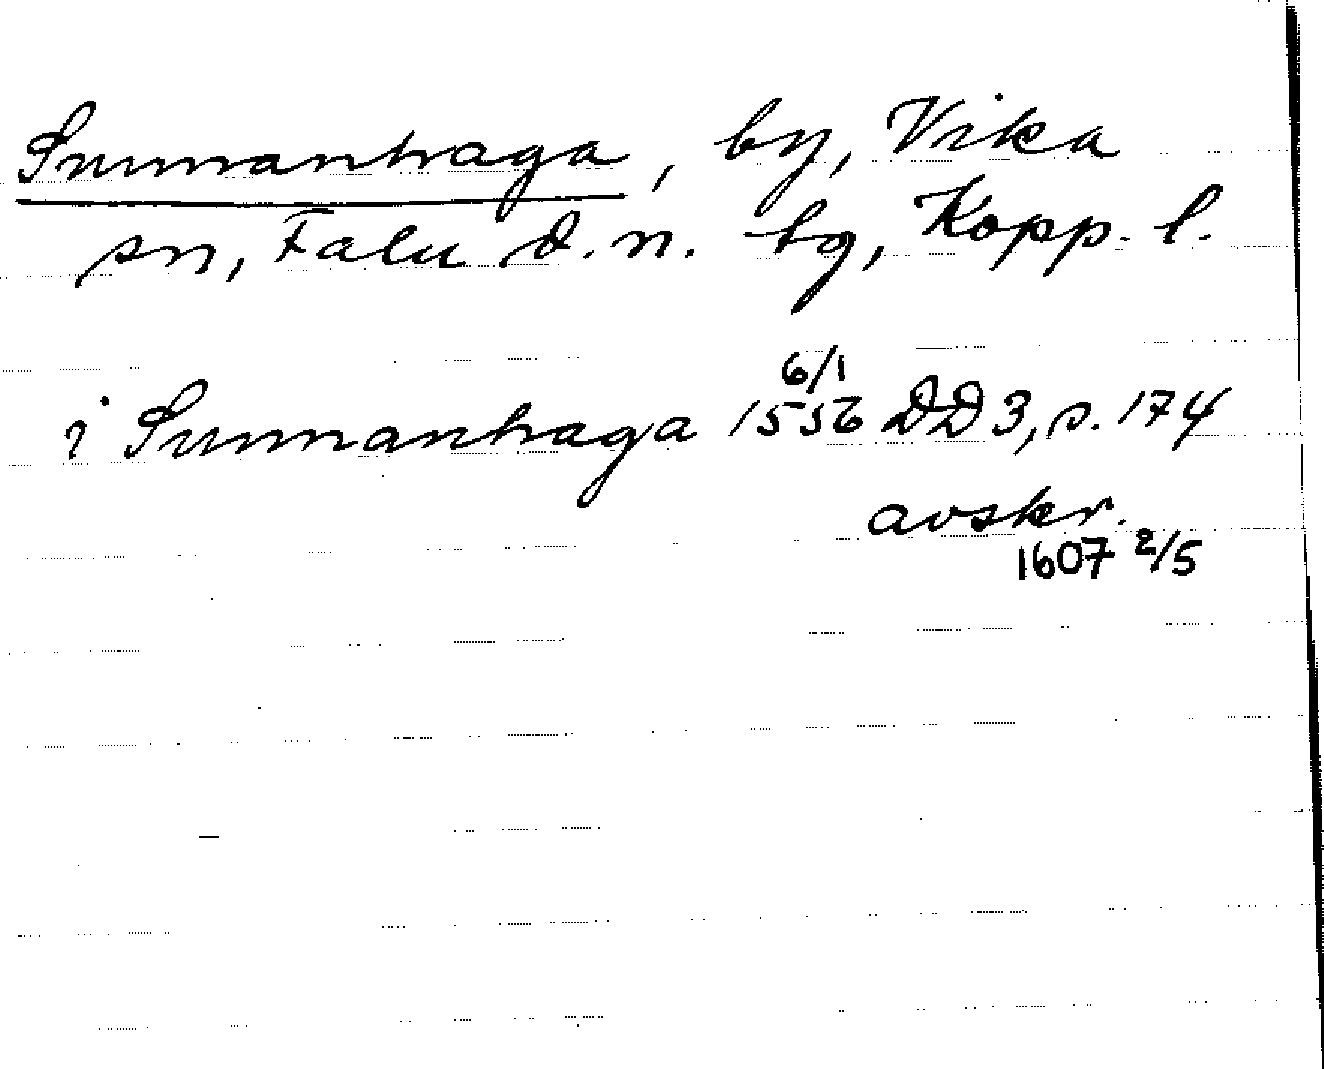 Sunnanhaga, by, Vika
sn, Falu d. n. tg, Kopp. l.
i Sunnanhaga 1556 6/1 DD 3, s. 174
avskr.
1607 2/5